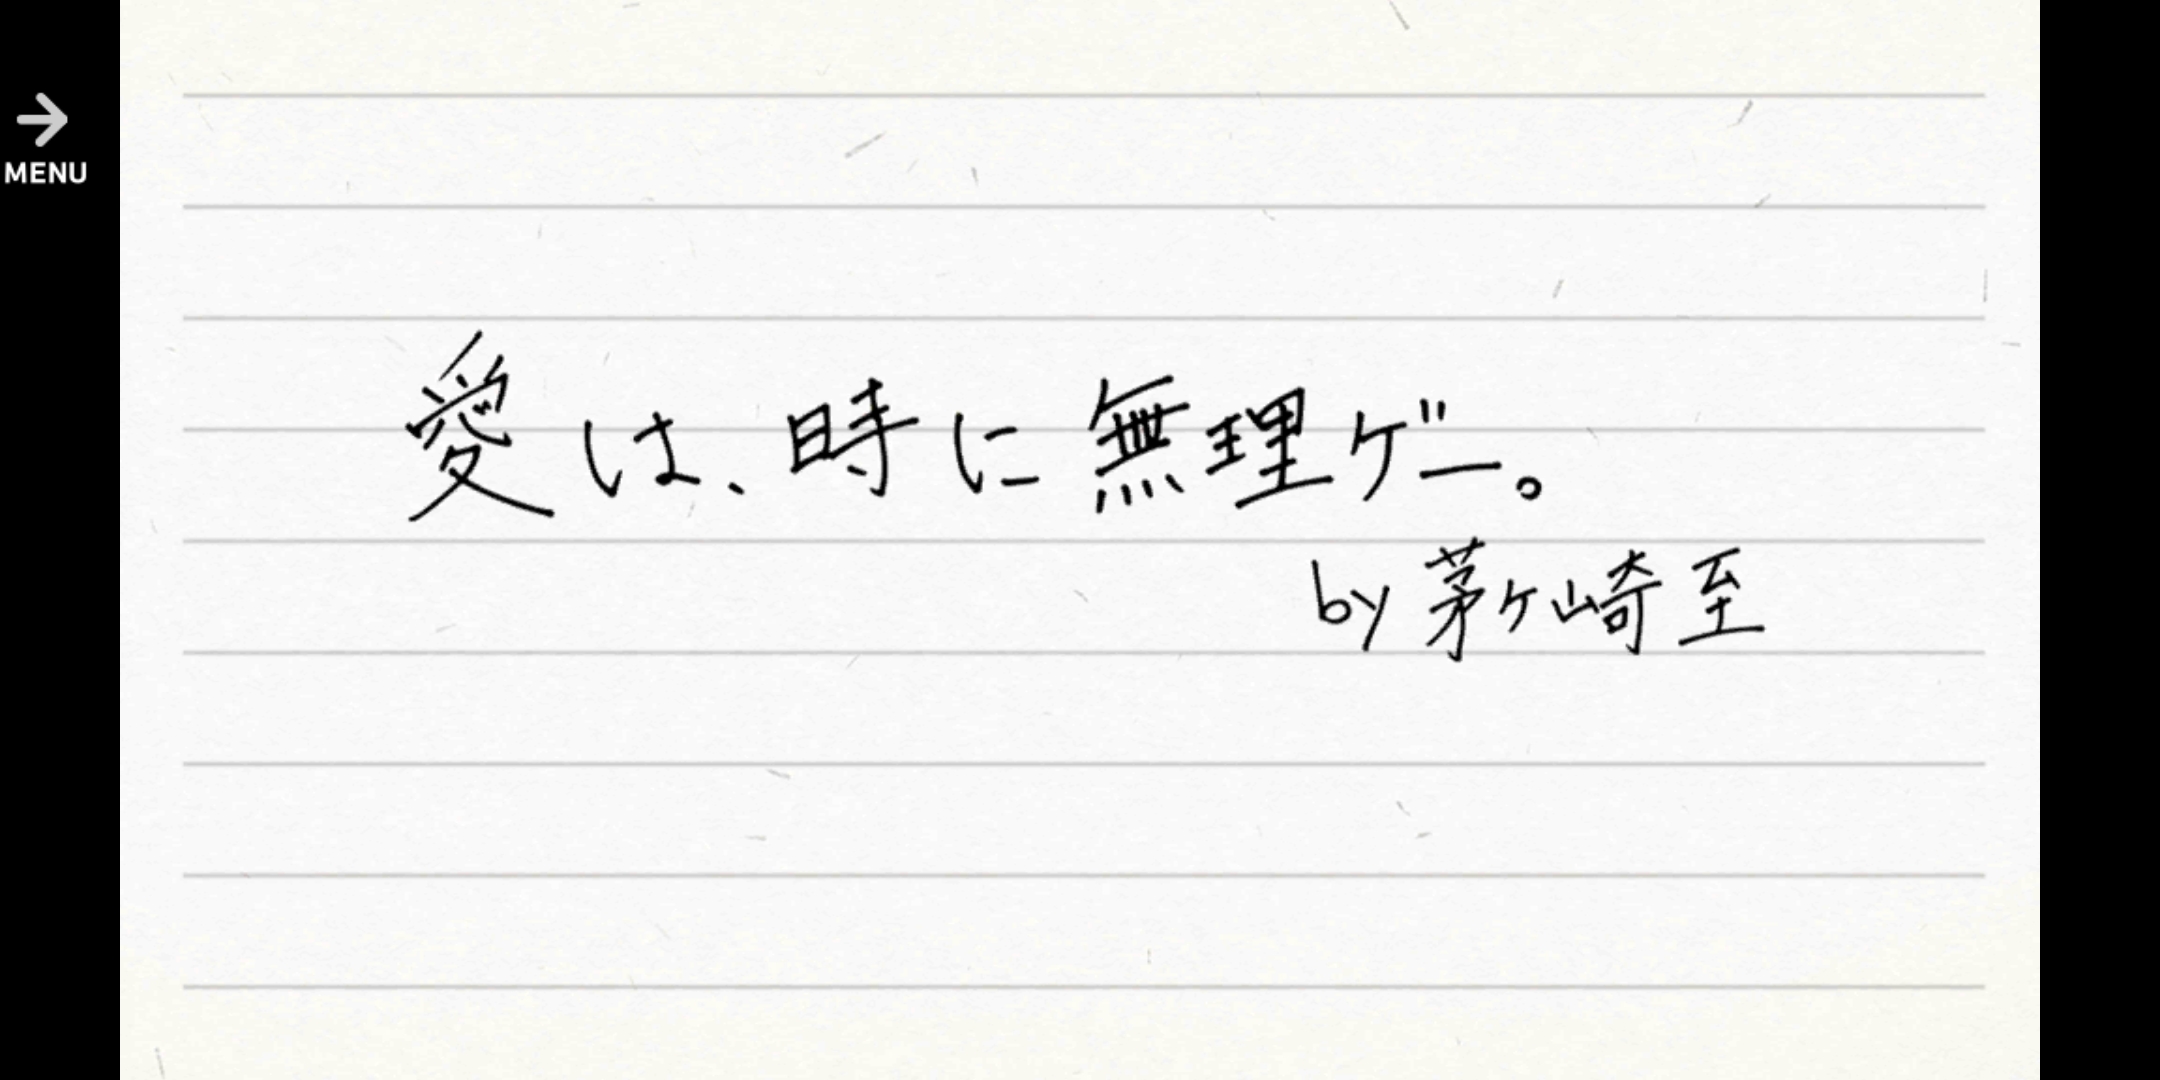 MENU
愛は、時に無理ゲー。
by 茅ヶ崎至